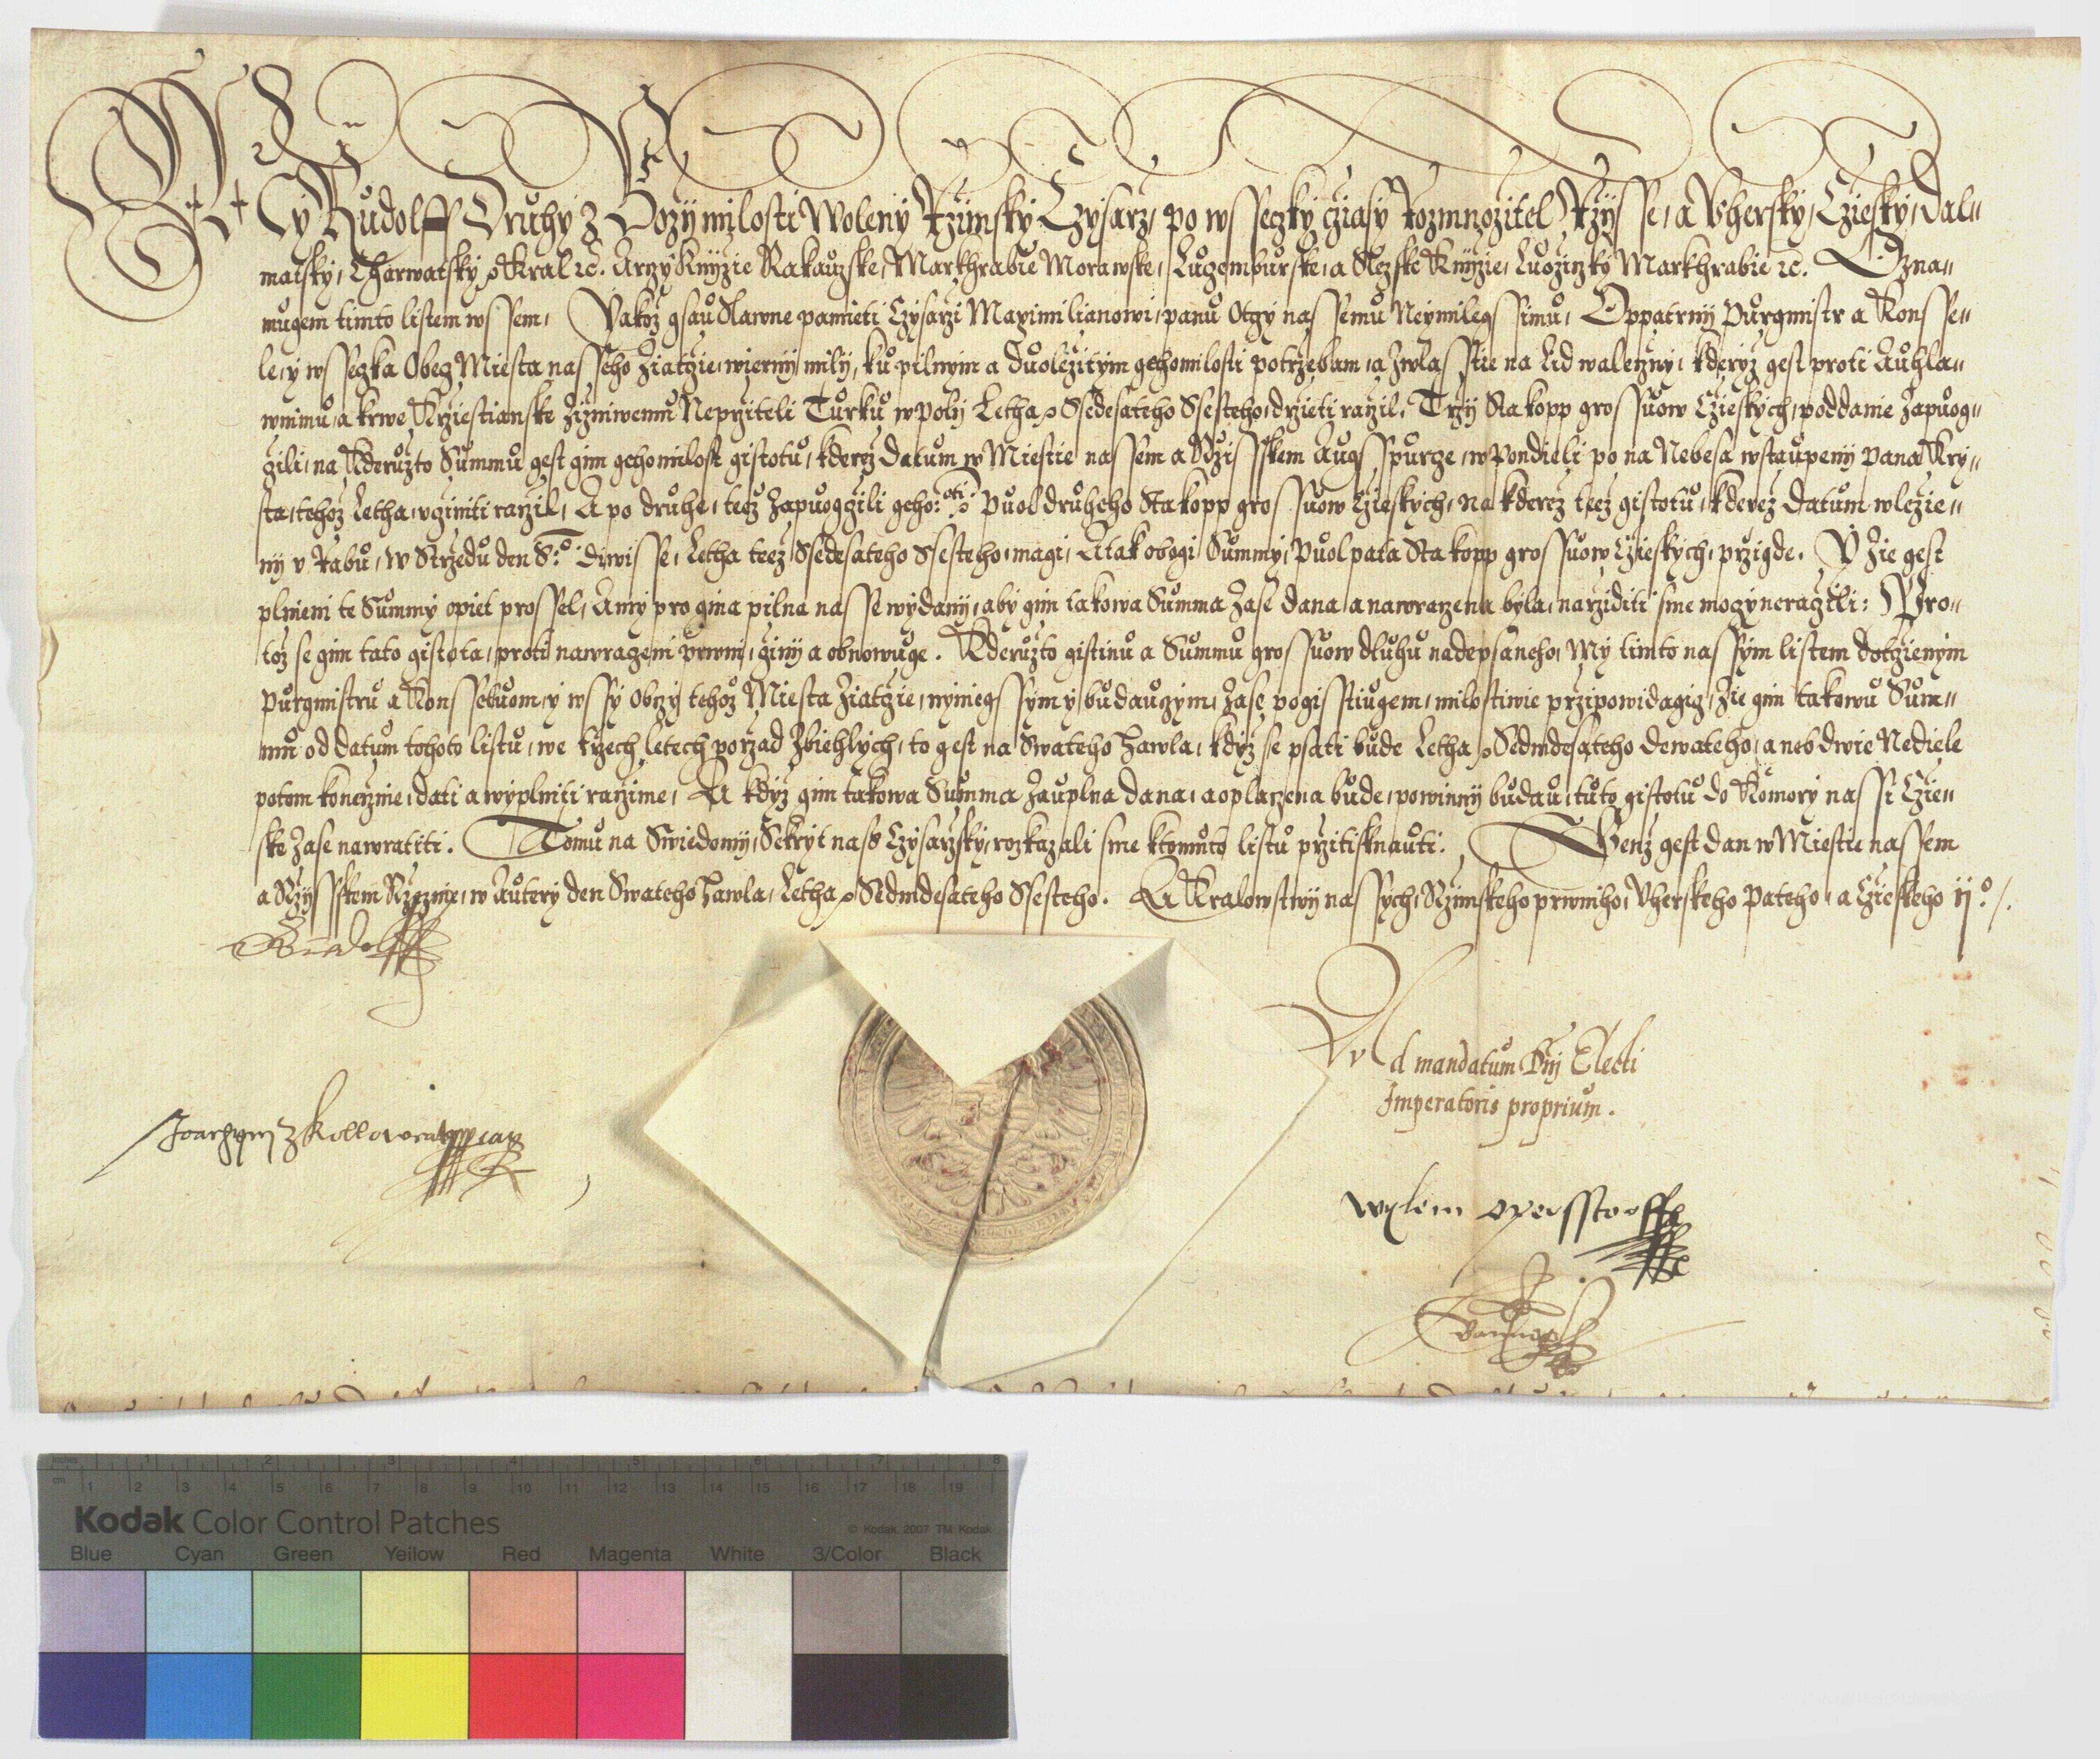 My Rudolff Druhy z Bozy milosti Woleny Rzimsky Czysarz, po wsseczky cziasy Rozmnozitel Rzysse, a Vhersky, Cziesky, Dal„
matsky, Charwatsky ꝛc Kral ꝛc. Arczy Knyzie Rakauzske, Markhrabie Morawske, Luczemburske, a Slezske Knyzie, Luoziczky Markhrabie ꝛc. Ozna„
mugem timto listem wssem, Yakoz gsau Slawne pamieti Czysarzi Maximilianowi, panu Otczy nassemu Neymilegssimu, Oppatrny Purgmistr a Konsse„
le, y wsseczka Obecz Miesta nasseho Ziatcze, wierny mily, ku pilnym a duolezitym geho milosti potrzebam, a zwlasstie na Lid waleczny, kderyz gest proti Auhla„
wnimu, a krwe Krziestianske Zizniwemu Neprziteli Turku, w poly Letha ꝛc Ssedesateho Ssesteho, drzieti raczil, Trzy Sta kopp grossuow Czieskych, poddanie zapuog„
gili, na Kderuzto Summu gest gim geho milost gistotu, kderez datum w Miestie nassem a Rzisskem Augsspurge, w Pondieli po na Nebesa wstaupeny pana Kry„
sta, tehoz Letha, vginiti raczil, A po druhe, teez Zapuoggili geho: oti: ꝛc Puol druheho Sta kopp grossuow Czieskych, na kderez teez gistotu, kderez datum w lezie„
ny v Rabu, w Strzedu den S:o Diwisse, Letha teez Ssedesateho Ssesteho, magi, A tak obogi Summy, Puol pata Sta kopp grossuow Czieskych, przigde. Y Zie gest
plnieni te Summy opiet prossel, A my pro gina pilna nasse wydany, aby gim takowa Summa zase dana, a nawraczena byla, narziditi sme moczy neraczili: Pro„
toz se gim tato gistota, proti nawraczeni prwni, giny a obnowuge. Kderuzto gistinu a Summu grossuow dluhu nadepsaneho, My timto nassym listem dotczienym
Purgmistru a Konsseluom, y wssy Obczy tehoz Miesta Ziatcze, nyniegssym y buduczym, Zase pogisstiugem, milostiwie przipowidagicz, Zie gim takowu Sum„
mu od datum tohoto listu, we trzech letech porzad Zbiehlych, to gest na Swateho Hawla, kdyz se psati bude Letha ꝛc Sedmdesateho dewateho, a neb dwie Nediele
potom konecznie, dati a wyplniti raczime, A kdyz gim takowa Summa Zauplna dana, a oplaczena bude, powinny budau, tuto gistotu do Komory nassi Czie„
ske zase nawratiti. Tomu na Swiedomy, Sekryt nass Czysarzsky, rozkazali sme k tomuto listu przitisknauti. Genz gest dan w Miestie nassem
a Rzysskem Rzezznie, w Autery den Swateho Hawla, Letha ꝛc Sedmdesateho Ssesteho. A Kralowstwy nassych, Rzimskeho prwniho, Vherskeho Pateho, a Czieskeho ij:o
Rudolff
Ad mandatum Dnj Electi
Imperatoris proprium.
Joachym z Kollowrat
Wylem Opersstorff
Kodak Color Control Patches
© Kodak, 2007 TM: Kodak
inches 1 2 3 4 5 6 7 8
cm 1 2 3 4 5 6 7 8 9 10 11 12 13 14 15 16 17 18 19
Blue Cyan Green Yellow Red Magenta White 3/Color Black